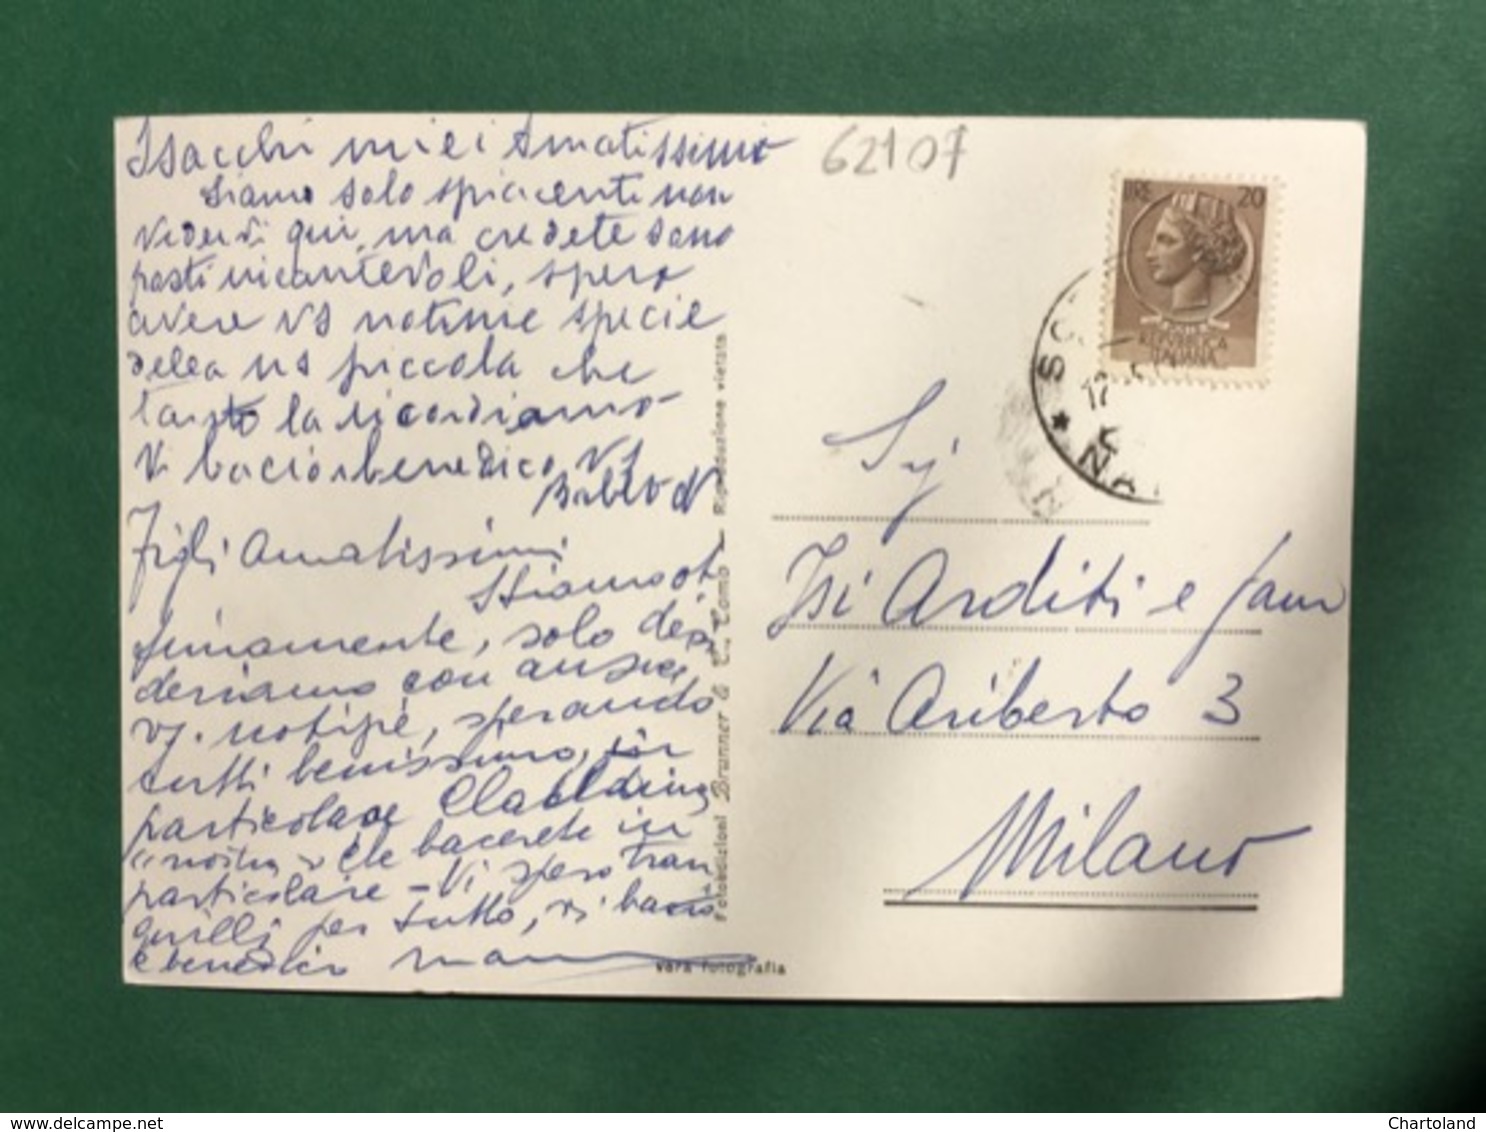 Isacchi miei Amatissimo
siamo solo spiacenti non
vedervi qui, ma credete sono
posti incantevoli, spero
avere vs notizie specie
della vs piccola che
tanto la ricordiamo
Vi bacio e benedico vs
Figli Amatissimi
Stiamo ot
timamente, solo desi
deriamo con ansia
vs. notizie, sperando
tutti benissimo, in
particolare
"nostra" che bacerete in
particolare - Vi spero tran
quilli per tutto, vi bacio
e benedico
62107
LIRE 20
REPUBBLICA
ITALIANA
12
NA
Sig
Isi Arditi e fam
Via Ariberto 3
Milano
Fotoedizioni Brunner & C. Como - Riproduzione vietata
vera fotografia
www.delcampe.net
Chartoland